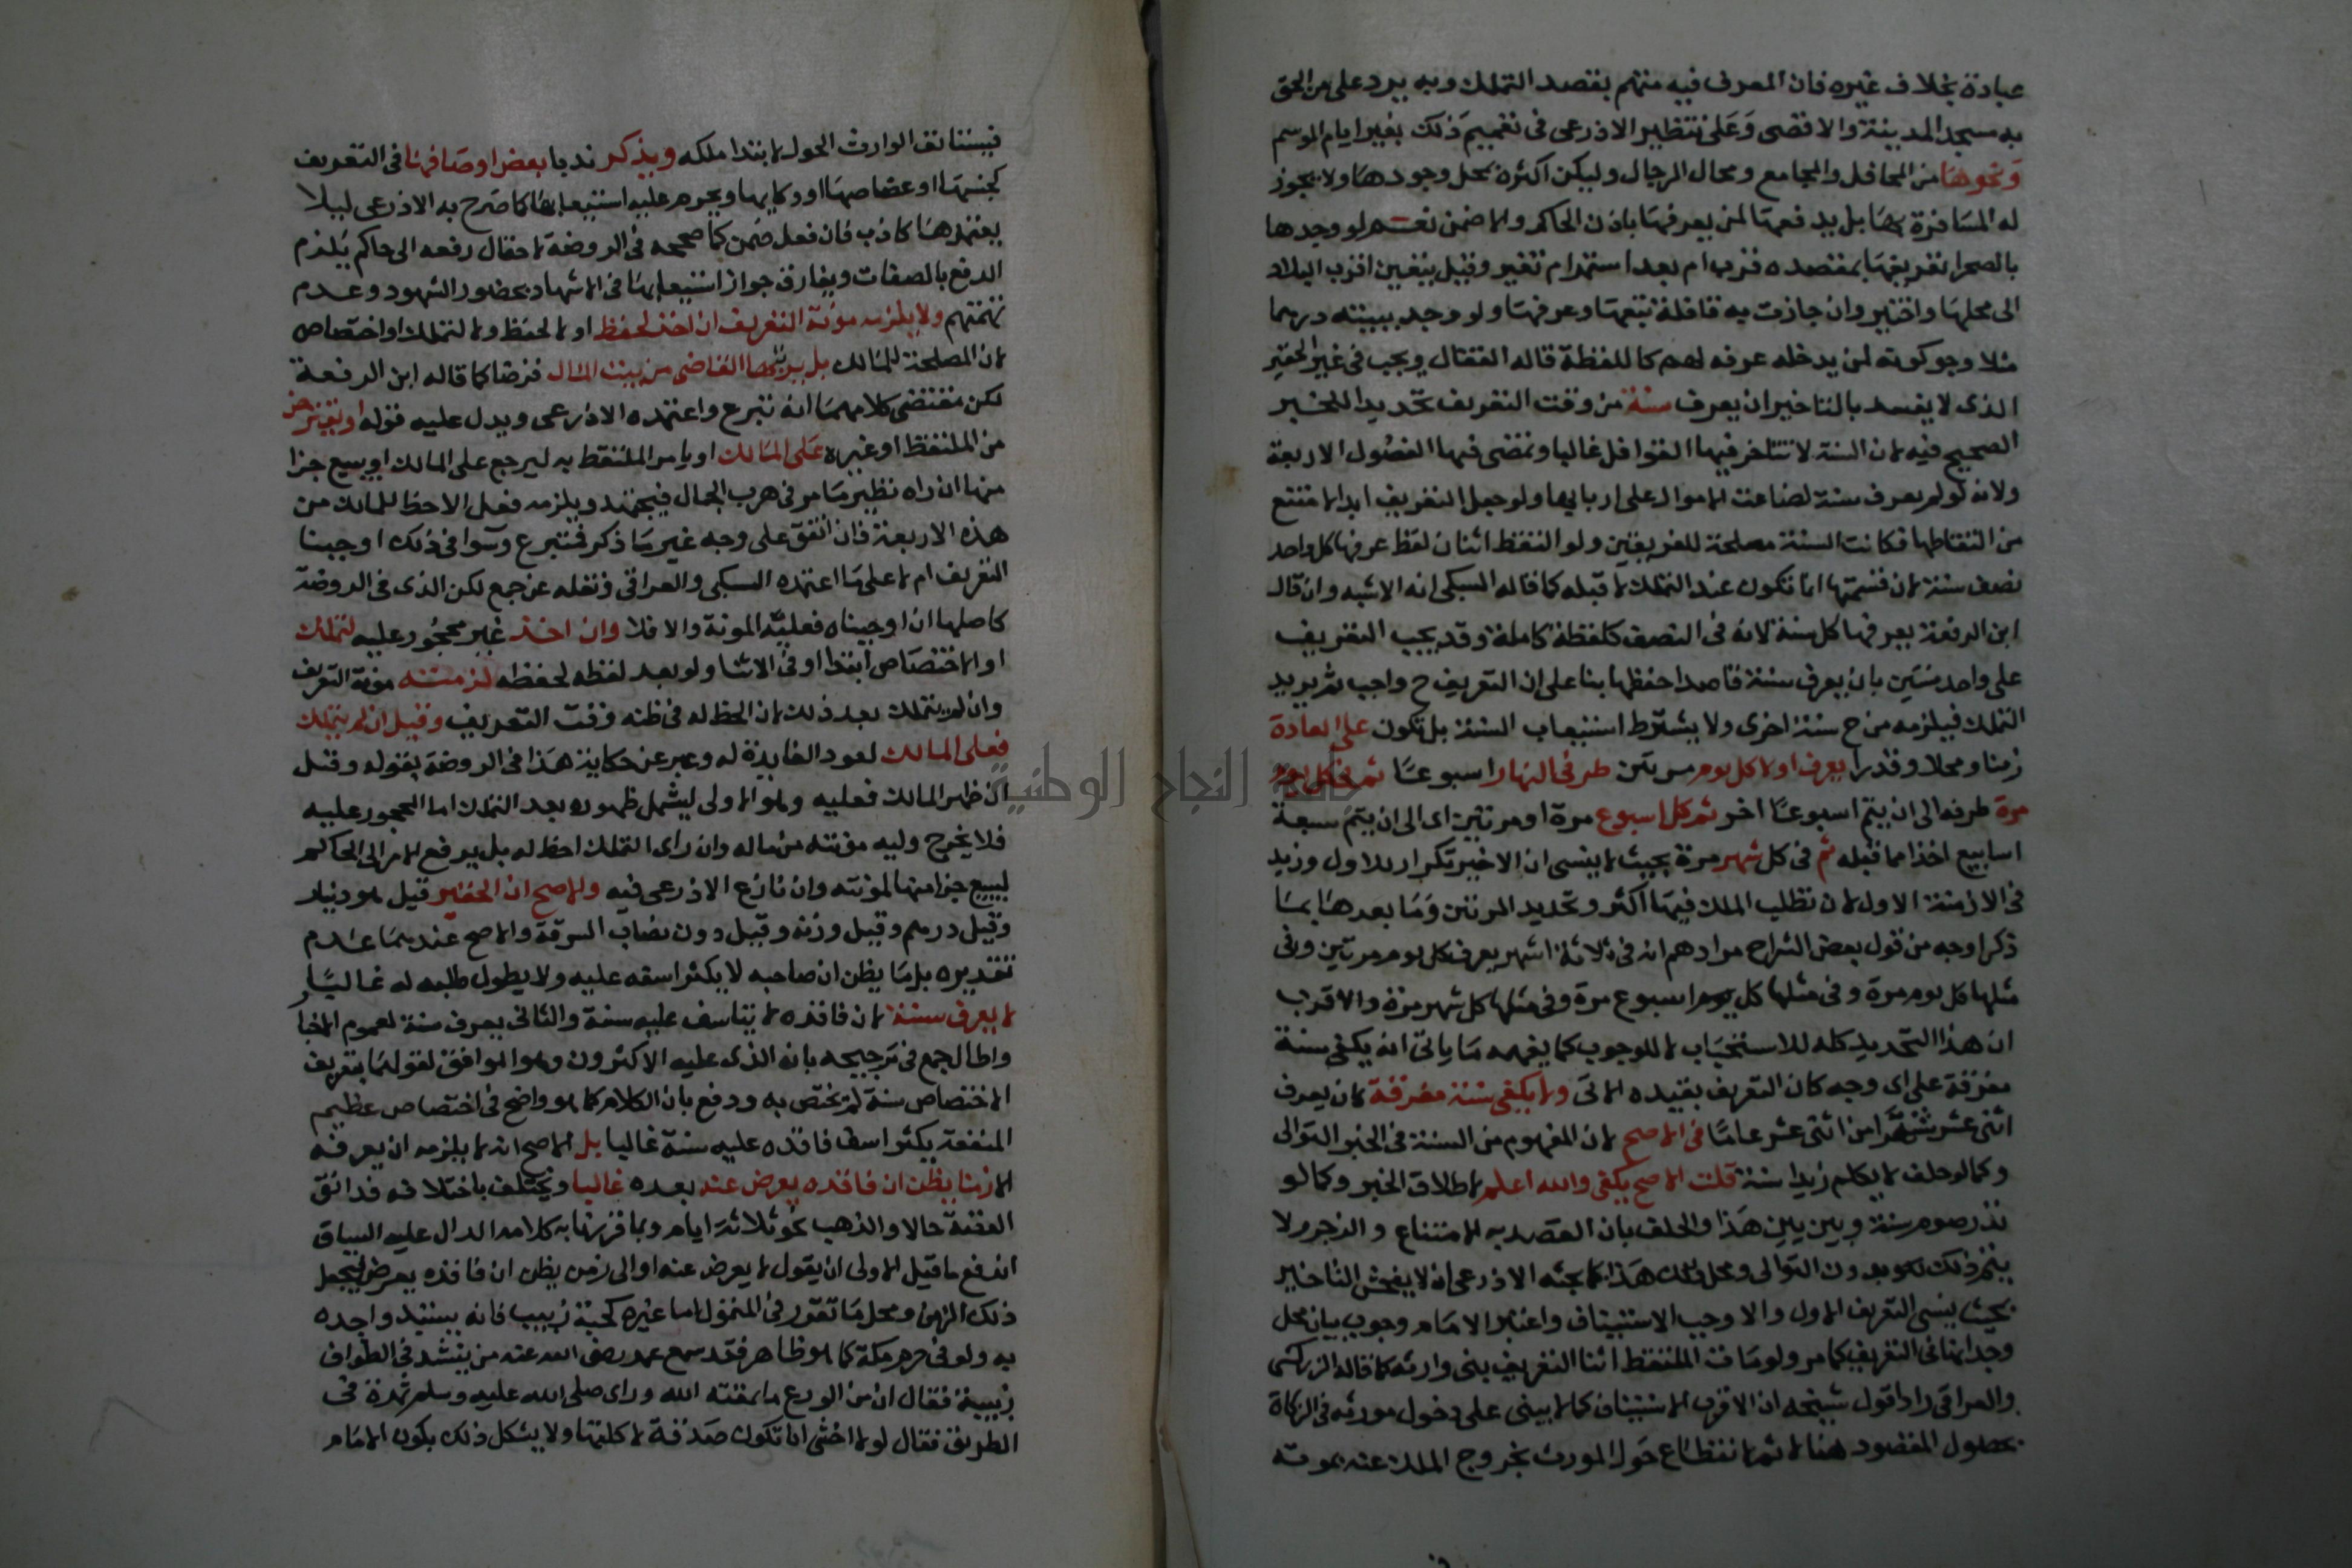 عبادة بخلاف غيره فان المعرف فيه متهم بقصد التملك وبه يرد على من الحق
به مسجد المدينة والاقصى وعلى تنظير الاذرعى فى تعميم ذلك بغير ايام الموسم
ونحوها من المحافل والمجامع ومحال الرجال وليكن اكثره بمحل وجودها ولا يجوز
له المسافرة بها بل يدفعها لمن يعرفها باذن الحاكم والا ضمن نعم لو وجدها
بالصحرا تعريفها بمقصده قرب ام بعد استدام تغير وقيل يتعين اقرب البلاد
الى محلها واختير وان جازت به قافلة تبعها وعرفها ولو وجد ببيته درهما
مثلا وجو كونه لمن يدخله عرفه لهم كاللقطة قاله القفال ويجب فى غير الحقير
الذى لا يفسد بالتاخير ان يعرف سنة من وقت التعريف تحديدا للخبر
الصحيح فيه لان السنة لا تتاخر فيها القوافل غالبا وتمضى فيها الفصول الاربعة
ولانه لو لم يعرف سنة لضاعت الاموال على اربابها ولو جعل التعريف ابدا لامتنع
من التقاطها فكانت السنة مصلحة للفريقين ولو التقط اثنان لقطة عرفها كل واحد
نصف سنة لان قسمتها انما تكون عند التملك لا قبله كما قاله السبكى انه الاشبه وان قال
ابن الرفعة يعرفها كل سنة لانه فى النصف كلقطة كاملة وقد يجب التعريف
على واحد سنتين بان يعرف سنة قاصدا حفظها بنا على ان التعريف ح واجب ثم يريد
التملك فيلزمه من ح سنة اخرى ولا يشترط استيعاب السنة بل تكون على العادة
زمنا ومحلا وقدرا يعرف اولا كل يوم مرتين طرفى النهار اسبوعا ثم فى كل يوم
مرة طرفه الى ان يتم اسبوعا اخر ثم كل اسبوع مرة او مرتين اى الى ان يتم سبعة
اسابيع اخذا مما قبله ثم فى كل شهر مرة بحيث لا ينسى ان الاخير تكرار للاول وزيد
فى الازمنة الاول لان تطلب الملك فيها اكثر وتحديد المرتين وما بعدهما بما
ذكر اوجه من قول بعض الشراح مرادهم انه فى ثلاثة اشهر يعرف كل يوم مرتين وفى
مثلها كل يوم مرة وفى مثلها كل اسبوع مرة وفى مثلها كل شهر مرة والاقرب
ان هذا التحديد كله للاستحباب لا للوجوب كما يفهمه ما ياتى انه يكفى سنة
مفرقة على اى وجه كان التعريف بقيده الاتى ولا يكفى سنة مفرقة كان يعرف
اثنى عشر شهرا من اثنى عشر عاما فى الاصح لان المفهوم من السنة فى الخبر التوالى
وكما لو حلف لا يكلم زيدا سنة قلت الاصح يكفى والله اعلم لاطلاق الخبر وكما لو
نذر صوم سنة وبين يلين هذا والحلف بان القصد به الامتناع والزجر ولا
يتم ذلك بدون التوالى ومحل ذلك هذا كما بحثه الاذرعى ان لا يفحش التاخير
بحيث ينسى التعريف الاول والا وجب الاستيناف واعتبر الامام وجوب بيان محل
وجدانها فى التعريف كما مر ولو مات الملتقط اثنا التعريف بنى وارثه كما قاله الزركشى
والعراقى رادا قول شيخه ان الاقرب الاستيناف كما لا يبنى على دخول مورثه فى الزكاة
بحصول المقصود هنا لا ثم لانقطاع حول المورث بخروج الملك عنه بموته
فيستانف الوارث الحول لابتدا ملكه ويذكر ندبا بعض اوصافها فى التعريف
كجنسها او عفاصها او وكايها ويحرم عليه استيعابها كما صرح به الاذرعى ليلا
يعتمدها كاذب فان فعل ضمن كما صححه فى الروضة لاحتمال رفعه الى حاكم يلزم
الدفع بالصفات ويفارق جواز استيعابها فى الاشهاد بحضور الشهود وعدم
تهمتهم ولا يلزمه مونة التعريف ان اخذ لحفظ او لا لحفظ ولا لتملك او اختصاص
لان المصلحة للمالك بل يرتبها القاضى من بيت المال قرضا كما قاله ابن الرفعة
لكن مقتضى كلامهما انه تبرع واعتمده الاذرعى ويدل عليه قوله او يقترض
من الملتقط او غيره على المالك او يامر الملتقط به ليرجع على المالك او يبيع جزا
منها ان راه نظير ما مر فى هرب الجمال فيجتهد ويلزمه فعل الاحظ للمالك من
هذه الاربعة فان انفق على وجه غير ما ذكر فتبرع وسوا فى ذلك اوجبنا
التعريف ام لا على ما اعتمده السبكى والعراقى ونقله عن جمع لكن الذى فى الروضة
كاصلها ان اوجبناه فعليه المونة والا فلا وان اخذ غير محجور عليه لتملك
او الاختصاص ابتدا او فى الاثنا ولو بعد لقطه لحفظه لزمته مونة التعريف
وان لم يتملك بعد ذلك لان الحظ له فى ظنه وقت التعريف وقيل ان لم يتملك
فعلى المالك لعود الفايدة له وعبر عن حكاية هذا فى الروضة بقوله وقيل
ان ظهر المالك فعليه وهو الاولى ليشمل ظهوره بعد التملك اما المحجور عليه
فلا يخرج وليه مونته من ماله وان راى التملك احظ له بل يرفع الامر الى الحاكم
ليبيع جزا منها لمونته وان نازع الاذرعى فيه والاصح ان الحقير قيل هو دينار
وقيل درهم وقيل وزنه وقيل دون نصاب السرقة والاصح عندهما عدم
تقديره بل ما يظن ان صاحبه لا يكثر اسفه عليه ولا يطول طلبه له غاليا
لا يعرف سنة لان فاقده لا يتاسف عليه سنة والثانى يعرف سنة لعموم الاخبا
واطال جمع فى ترجيحه بانه الذى عليه الاكثرون وهو الموافق لقولهما بتعريف
الاختصاص سنة ثم يختص به ودفع بان الكلام كما هو واضح فى اختصاص عظيم
المنفعة يكثر اسف فاقده عليه سنة غالبا بل الاصح انه لا يلزمه ان يعرفه
الا زمنا يظن ان فاقده يعرض عنه بعده غالبا ويختلف باختلافه فدانق
الفضة حالا والذهب نحو ثلاثة ايام وبما قررنا به كلامه الدال عليه السياق
اندفع ما قيل الاولى ان يقول لا يعرض عنه او الى زمن يظن ان فاقده يعرض ليجعل
ذلك الزمن ومحل ما تقرر فى المتمول اما غيره كحبة زبيب فانه يستبد واجده
به ولو فى حرم مكة كما هو ظاهر فقد سمع عمر رضى الله عنه من ينشد فى الطواف
زبيبة فقال ان من الورع ما يمقته الله وراى صلى الله عليه وسلم تمرة فى
الطريق فقال لولا اخشى ان تكون صدقة لاكلتها ولا يشكل ذلك بكون الامام
جامعة النجاح الوطنية